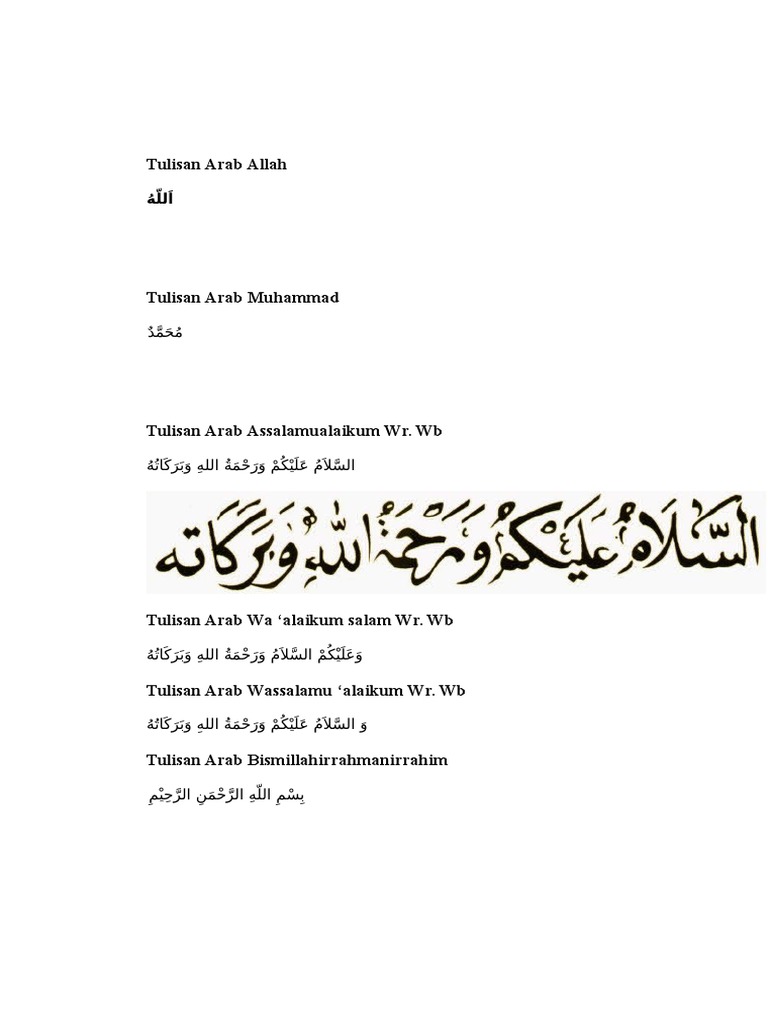 Tulisan Arab Allah
اَللّهُ
Tulisan Arab Muhammad
مُحَمَّدٌ
Tulisan Arab Assalamualaikum Wr. Wb
السَّلاَمُ عَلَيْكُمْ وَرَحْمَةُ اللهِ وَبَرَكَاتُهُ
السَّلَامُ عَلَيْكُمْ وَرَحْمَةُ اللهِ وَبَرَكَاته
Tulisan Arab Wa ‘alaikum salam Wr. Wb
وَعَلَيْكُمْ السَّلاَمُ وَرَحْمَةُ اللهِ وَبَرَكَاتُهُ
Tulisan Arab Wassalamu ‘alaikum Wr. Wb
وَ السَّلاَمُ عَلَيْكُمْ وَرَحْمَةُ اللهِ وَبَرَكَاتُهُ
Tulisan Arab Bismillahirrahmanirrahim
بِسْمِ اللّهِ الرَّحْمَنِ الرَّحِيْمِ